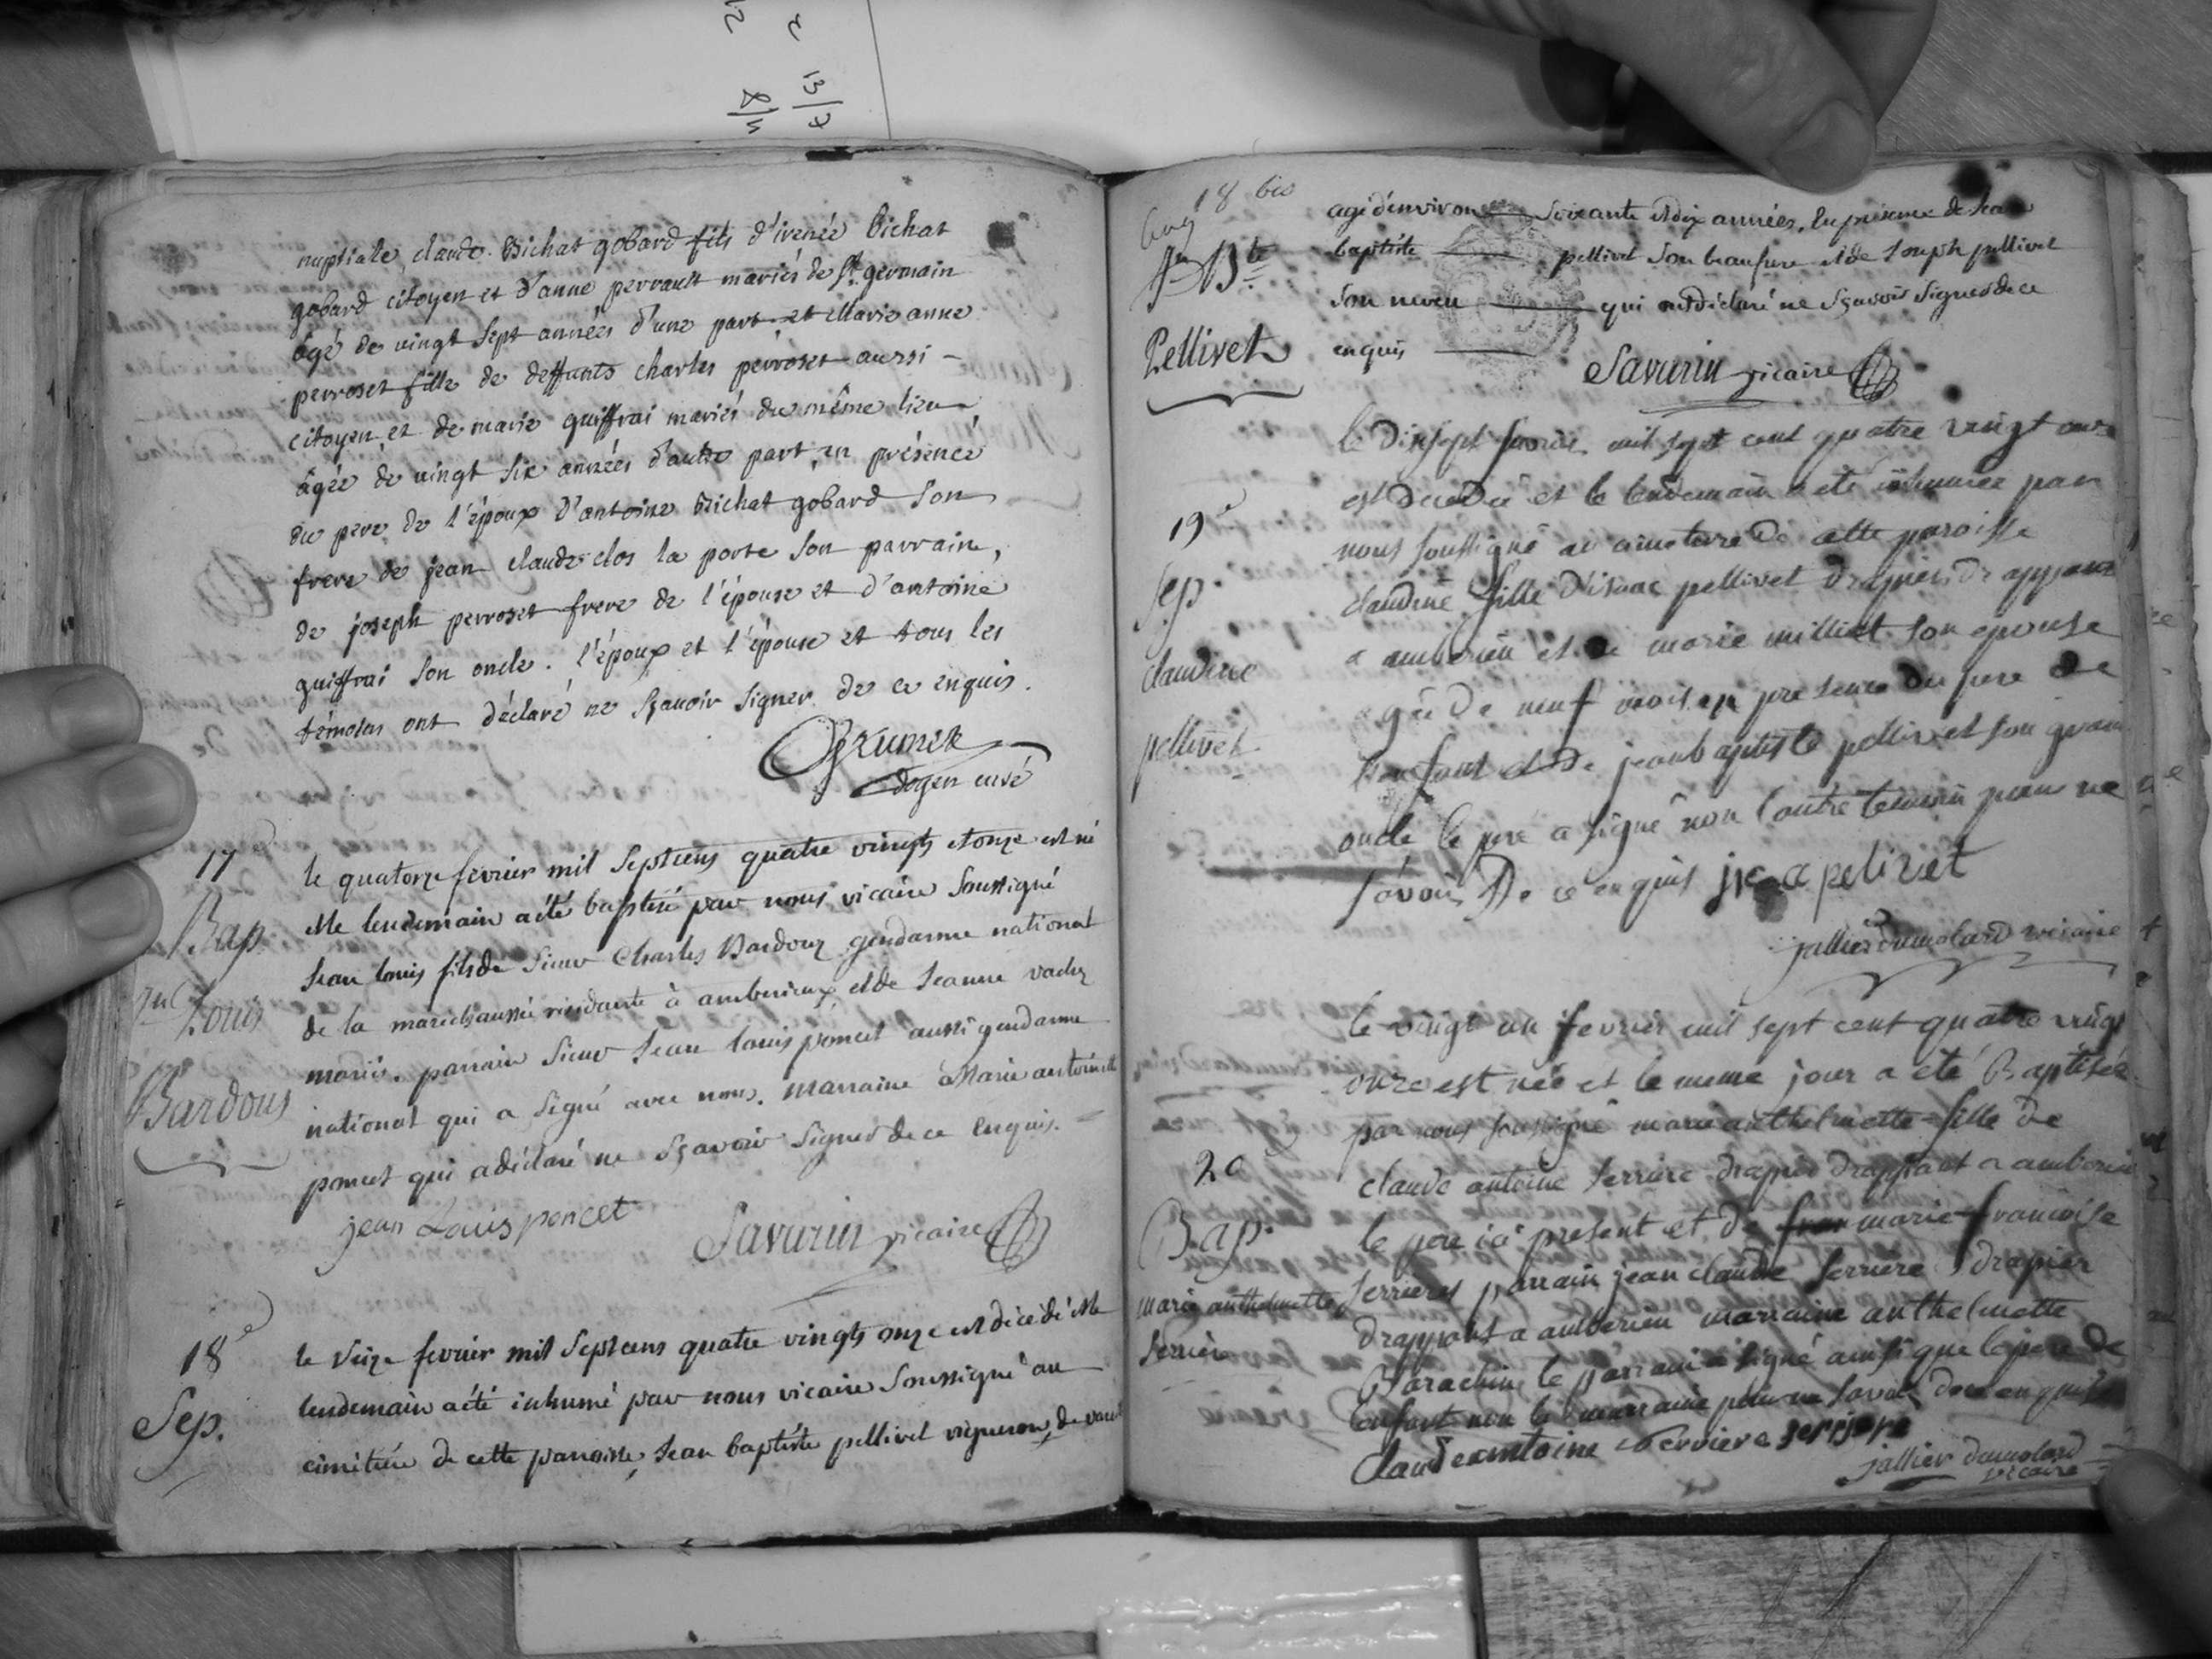 nuptiale, claude Bichat gobard fils d'irenée bichat
gobard citoyen et d'anne perrault mariés de St. germain
âgé de vingt sept années d'une part et Marie anne
perroset fille de deffunts charles perroset aussi -
citoyen et de marie guiffrai mariés du même lieu,
âgée de vingt six années d'autre part, en présence
du pere de l'époux d'antoine Bichat gobard son
frere de jean claude clos la porte son parrain,
de joseph perroset frere de l'épouse et d'antoine
guiffrai son oncle. l'époux et l'épouse et tous les
témoins ont déclaré ne sçavoir signer de ce enquis.
doyen curé
17e
Bap.
Jn Louis
Bardous
le quatorze fevrier mil septcens quatre vingts et onze est né
et le lendemain a été baptisé par nous vicaire soussigné
Jean louis fils de sieur Charles Bardouz gendarme national
de la marechaussé résidante à amberieux et de Jeanne vachez
mariés. parrain sieur Jean louis poncet aussi gendarme
national qui a signé avec nous. marraine Marie antoinette
poncet qui a déclaré ne sçavoir signer de ce enquis. =
jean Louis poncet
Savurin vicaire
18e
Sep.
le seize fevrier mil septcens quatre vingts onze est décédé et le
lendemain a été inhumé par nous vicaire soussigné au
cimétiére de cette parroisse, Jean baptiste pellivet vigneron, de
18 bis
Jn Bte
Pellivet
agé d'environ soixante et dix années, en présence de Jean
baptiste pellivet son beaufrere et de Joseph pellivet
son neveu qui ont déclaré ne sçavoir signer de ce
enquis
Savurin vicaire
19e
Sep.
claudine
pellivet
le dixsept fevrier mil sept cent quatre vingt onze
est decedée et le lendemain a eté inhumée par
nous soussigné au cimetere de cette paroisse
claudine fille d'isaac pellivet drapier drappant
a amberieu et de marie milliet son epouse
agée de neuf mois en presence du pere de
l'enfant et de jean baptiste pellivet son grand
oncle le pere a signé non l'autre temoin pour ne
savoir De ce enquis pelivet
jallier dumolard vicaire
20e
Bap.
marie anthelmette
serriere
le vingt un fevrier mil sept cent quatre vingt
onze est née et le meme jour a eté Baptisée
par nous soussigné marie anthelmette fille de
claude antoine serriere drapier drappant a amberieu
le pere ici present et de marie francoise
serrieres parrain jean claude serriere drapier
drappant a amberieu marraine anthelmette
Barachin le parrain a signé ainsi que le pere de
l'enfant non la marraine pour ne savoir de ce enquis
Claude antoine serriere serriere
jallier dumolard
vicaire